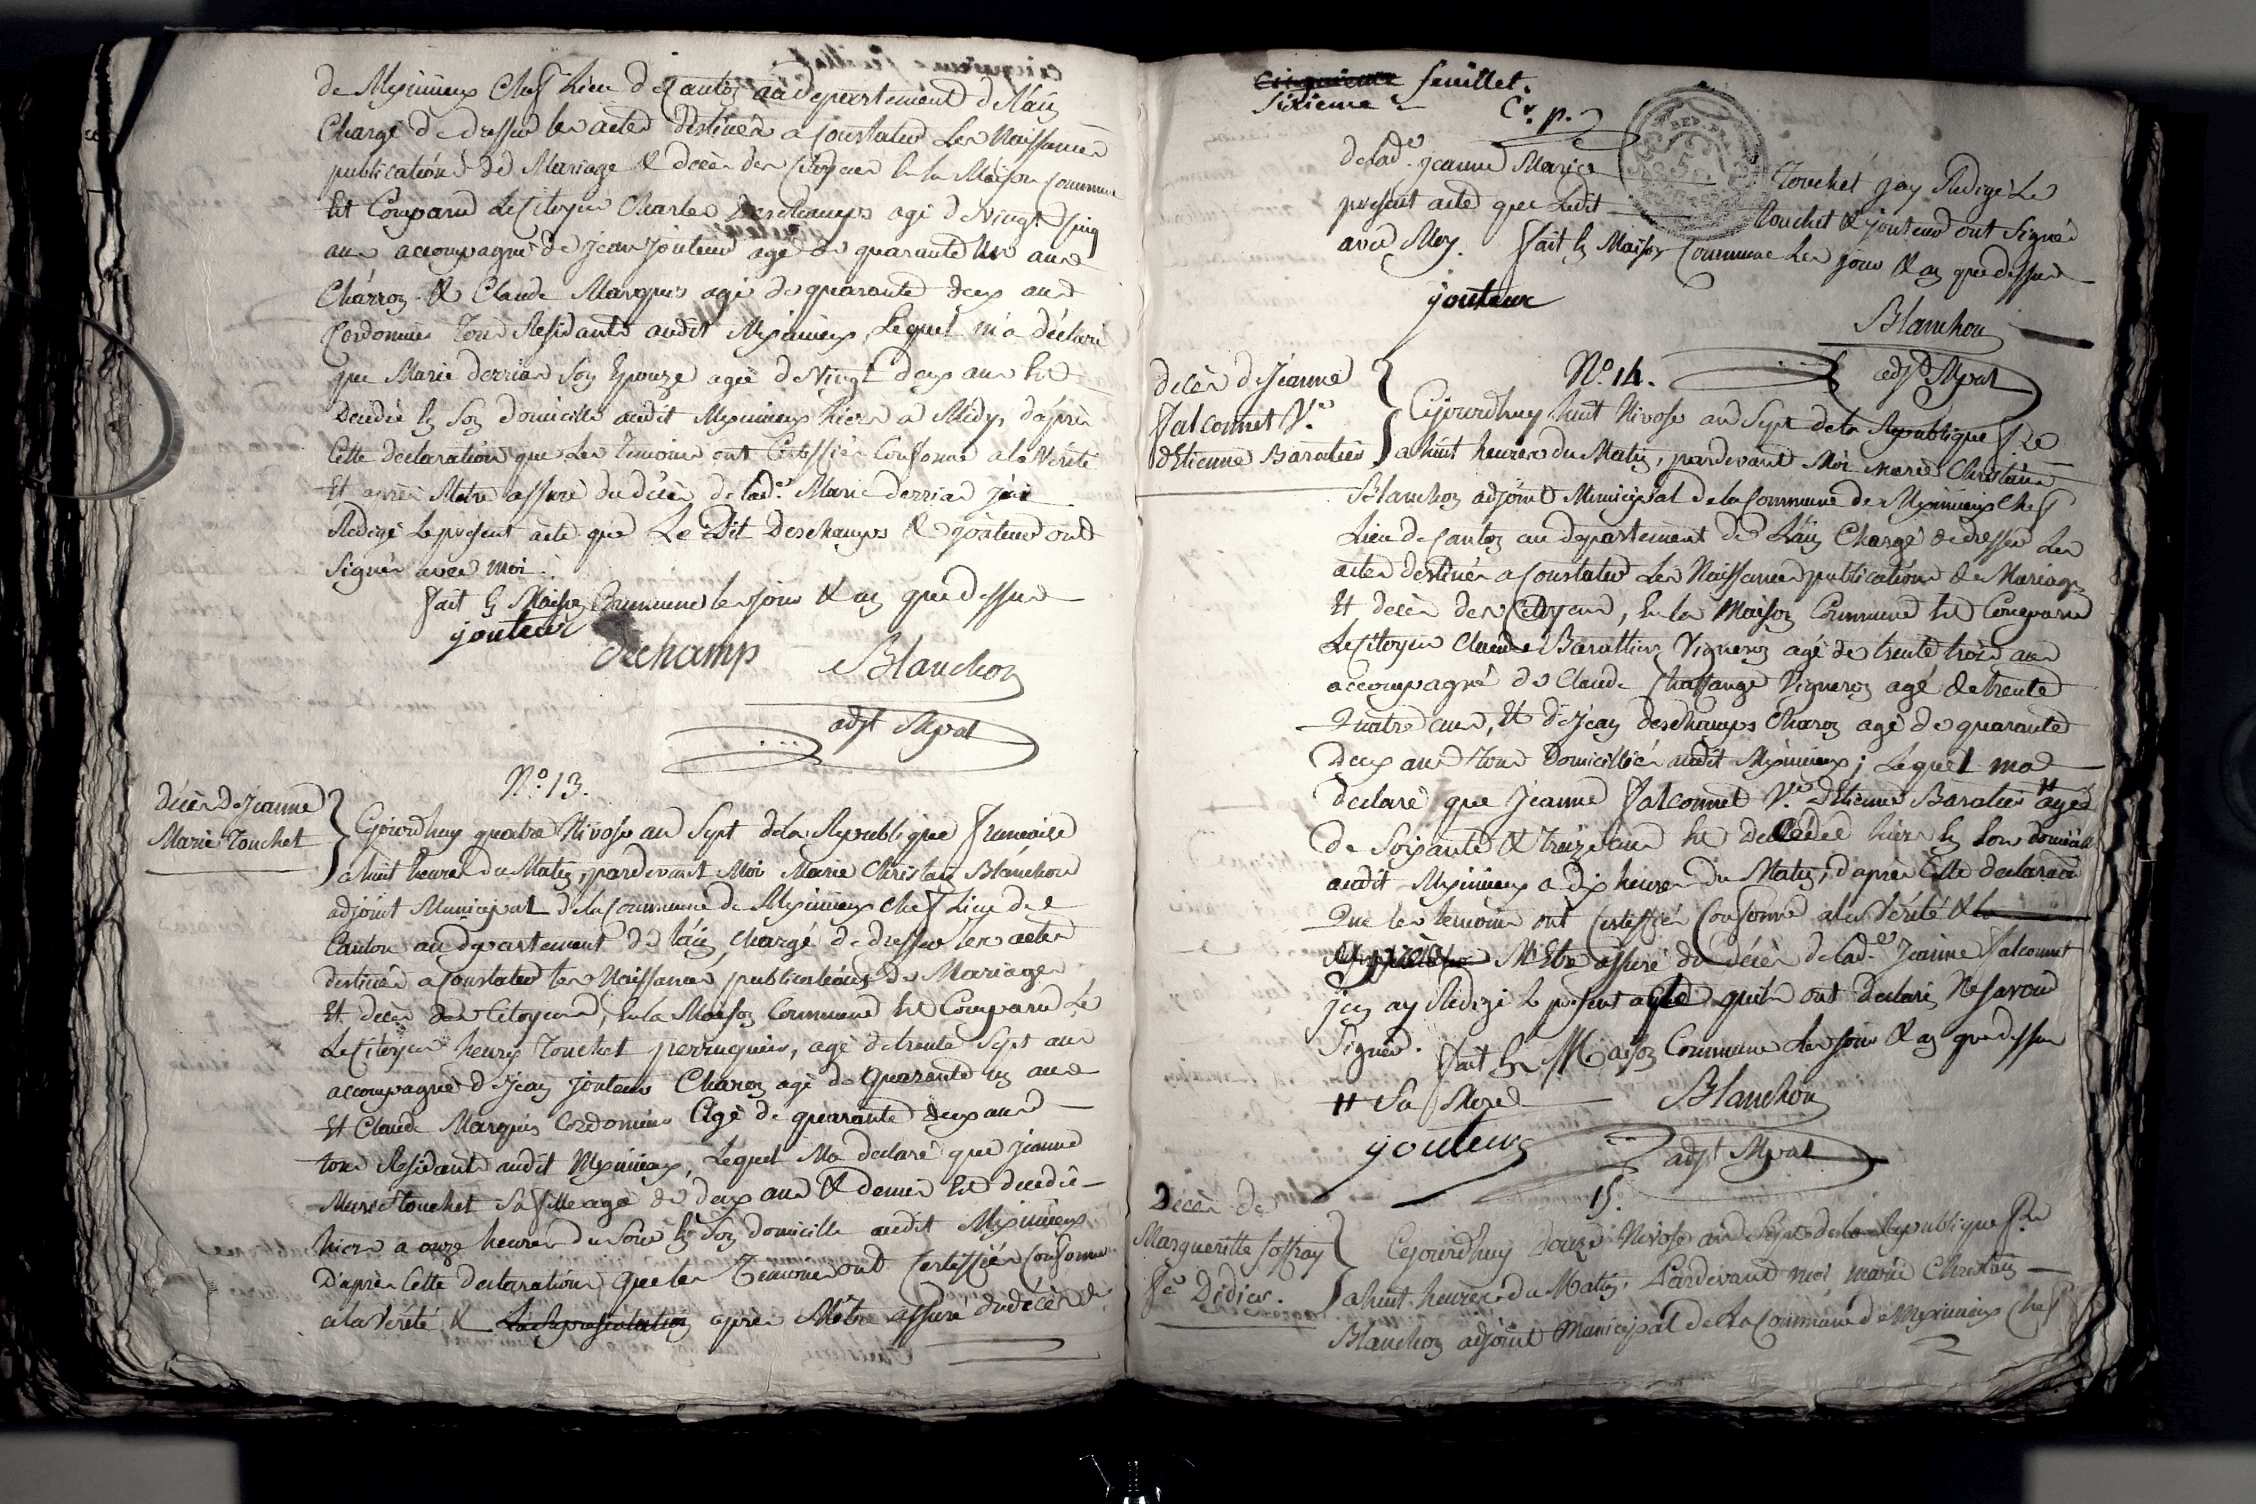 de Meximieux Chef Lieu de Canton au departement de l'ain
Chargé de dresser les actes destinés a constater les Naissances
publications de Mariage & décès des Citoyens En la Maison commune
Est Comparu le Citoyen Charles Deschamps agé de vingt cinq
ans accompagné de jean jouteur agé de quarante un ans
Charron & Claude Marquis agé de quarante deux ans
Cordonnier tous Residants audit Meximieux, Lequel m'a déclaré
que Marie derrias son Epouze agée de vingt deux ans Est
Decedée En son domicille audit Meximieux hier a Midy, d'après
Cette declaration que les Temoins ont Certiffiés Conforme a la Vérité
Et après M'etre assuré du décès de lade. Marie derrias j'ai
Redigé le présent acte que Le Dit Deschamps & jouteur ont
Signés avec moi.
fait En Maison Commune les jour & an que dessus
jouteur
dechamp Blanchon
adjt Mpal
No. 13.
décès de Jeanne
Marie Touchet
Cejourdhuy quatre Nivose an Sept de la Republique francaise
a huit heures du Matin, pardevant Moi Marie Christain Blanchon
adjoint Municipal de la Commune de Meximieux Chef Lieu de
Canton au departement de l'ain, chargé de dresser les actes
destinés a constater les Naissances, publications de Mariages
Et décès des Citoyens, En la Maison Commune Est Comparu Le
Le Citoyen henry Touchet perruquier, agé de trente Sept ans
accompagné de Jean jouteur Charon agé de quarante un ans
Et Claude Marquis Cordonnier agé de quarante deux ans
tous Residants audit Meximieux, Lequel Ma declaré que jeanne
Marie touchet Sa fille agé de deux ans & demis Est decedée
hier a onze heures du Soir En Son domicille audit Meximieux
D'après Cette declaration, que les Temoins ont Certiffiés Conforme
a la Verité & La Representation après M'etre assuré du décès de
Cinquieme feuillet.
Sixieme
Cr. p.
delade. jeanne Marie Touchet j'ay Redigé Le
present acte que Ledit Touchet & jouteur ont Signés
avec Moy. fait En Maison Commune les jour & an que dessus
jouteur
Blanchon
adjt Mpal
No. 14.
décès de Jeanne
Falconnet Ve.
d'Etienne Baratier
Cejourdhuy huit Nivose an Sept de la Republique fse
a huit heures du Matin, pardevant Moi Marie Christain
Blanchon adjoint Municipal de la Commune de Meximieux Chef
Lieu de Canton au departement de L'ain Chargé de dresser Les
actes destinés a Constater Les Naissances publications de Mariage
Et décès des Citoyens, En la Maison Commune Est Comparu
Le Citoyen Claude Barattier Vigneron agé de trente trois ans
accompagné de Claude Chassange Vigneron agé de trente
Quatre ans, Et de Jean deschamps Charon agé de quarante
Deux ans tous Domicilliés audit Meximieux; Lequel ma
declaré que Jeanne Falconnet Ve. d'Etienne Baratier agée
de Soixante & treize ans Est decedée hier En Son domicille
audit Meximieux a dix heures du Matin; d'après Cette declaration
Que les temoins ont Certiffiés Conforme a la Vérité & la
M'Etre assuré du décès de lade. Jeanne Falconnet
j'en ay Redigé le present acte qu'ils ont Declaré Ne Savoir
Signer. fait En Maison Commune les jour & an que dessus
Sa Mere Blanchon
jouteur
adjt Mpal
15.
Décès de
Margueritte Joffray
fe Didier.
Cejourdhuy douze Nivose an Sept de la Republique fse
a huit heures du Matin. Pardevant moi marie Christain
Blanchon adjoint Municipal de la Commune de Meximieux Chef